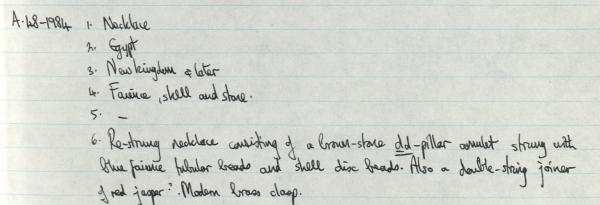 A.48-1984 1. Necklace
2. Egypt
3. New kingdom & later
4. Faience, shell and stone.
5. –
6. Re-strung necklace consisting of a brown-stone dd-pillar amulet strung with
blue faience tubular beads and shell disc beads. Also a double-string joiner
of red jasper?. Modern brass clasp.